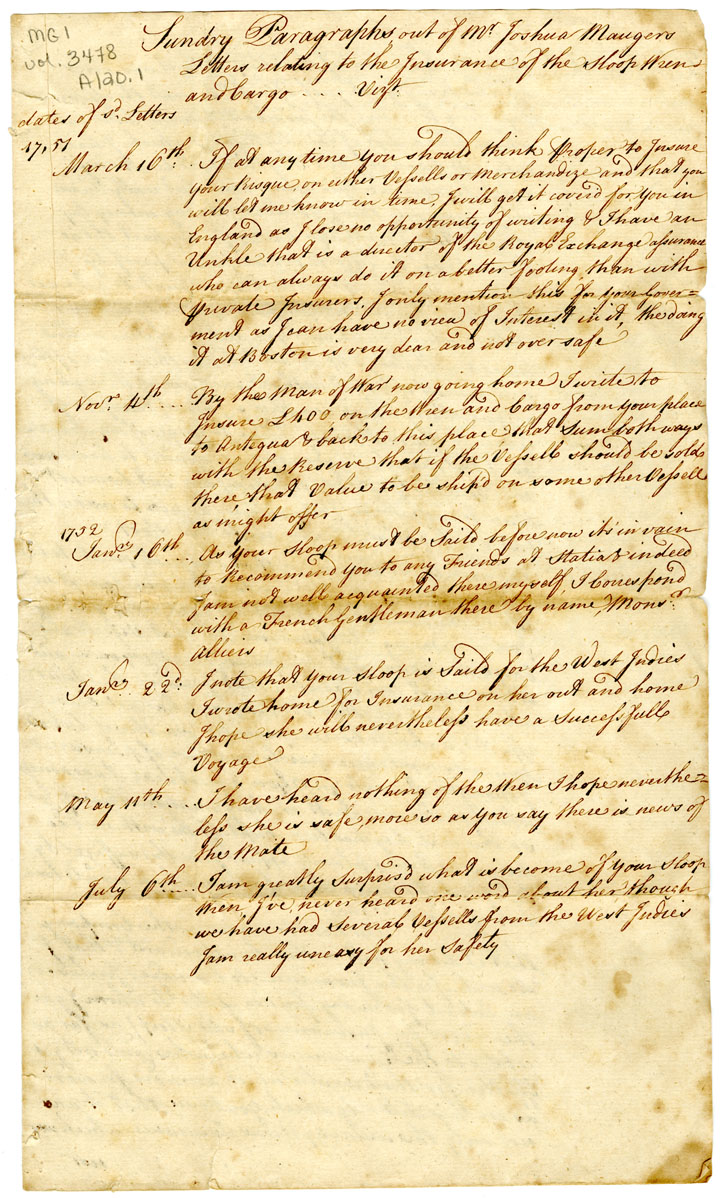 MG1
vol. 3478
A120.1
Sundry Paragraphs out of Mr. Joshua Maugers
Letters relating to the Insurance of the Sloop Wren
and Cargo .... Vizt.
dates of sd. Letters
1751
March 16th. If at any time you should think Proper to Insure
your Risque, on either Vessells or Merchandize and that you
will let me know in time, I will get it coverd for you in
England as I lose no opportunity of writing & I have an
Unkle that is a director of the Royal Exchange assurance
who can always do it on a better footing than with
Private Insurers, I only mention this for your Gover=
ment as I can have no view of Interest in it, the doing
it at Boston is very dear and not over safe
Novr. 4th .... By the Man of War now going home I write to
Insure £400 on the Wren and Cargo from your place
to Antegua & back to this place that Sum both ways
with the Reserve that if the Vessell should be sold
there that Value to be ship'd on some other Vessell
as might offer
1752
Janry. 16th .... As your Sloop must be Saild before now its in vain
to Recommend you to any Friends at Statia & indeed
I am not well acquainted there myself, I Corespond
with a French Gentleman there by name, Monsr.
Alliers
Janry. 22d. I note that your Sloop is Saild for the West Indies
I wrote home for Insurance on her out and home
I hope she will nevertheless have a Successfull
Voyage
May 11th .... I have heard nothing of the Wren I hope neverthe=
less she is safe, more so as you say there is news of
the Mate
July 6th .... I am greatly Surprisd what is become of your Sloop
Wren, I've never heard one word about her though
we have had Several Vessells from the West Indies
I am really uneasy for her Safety